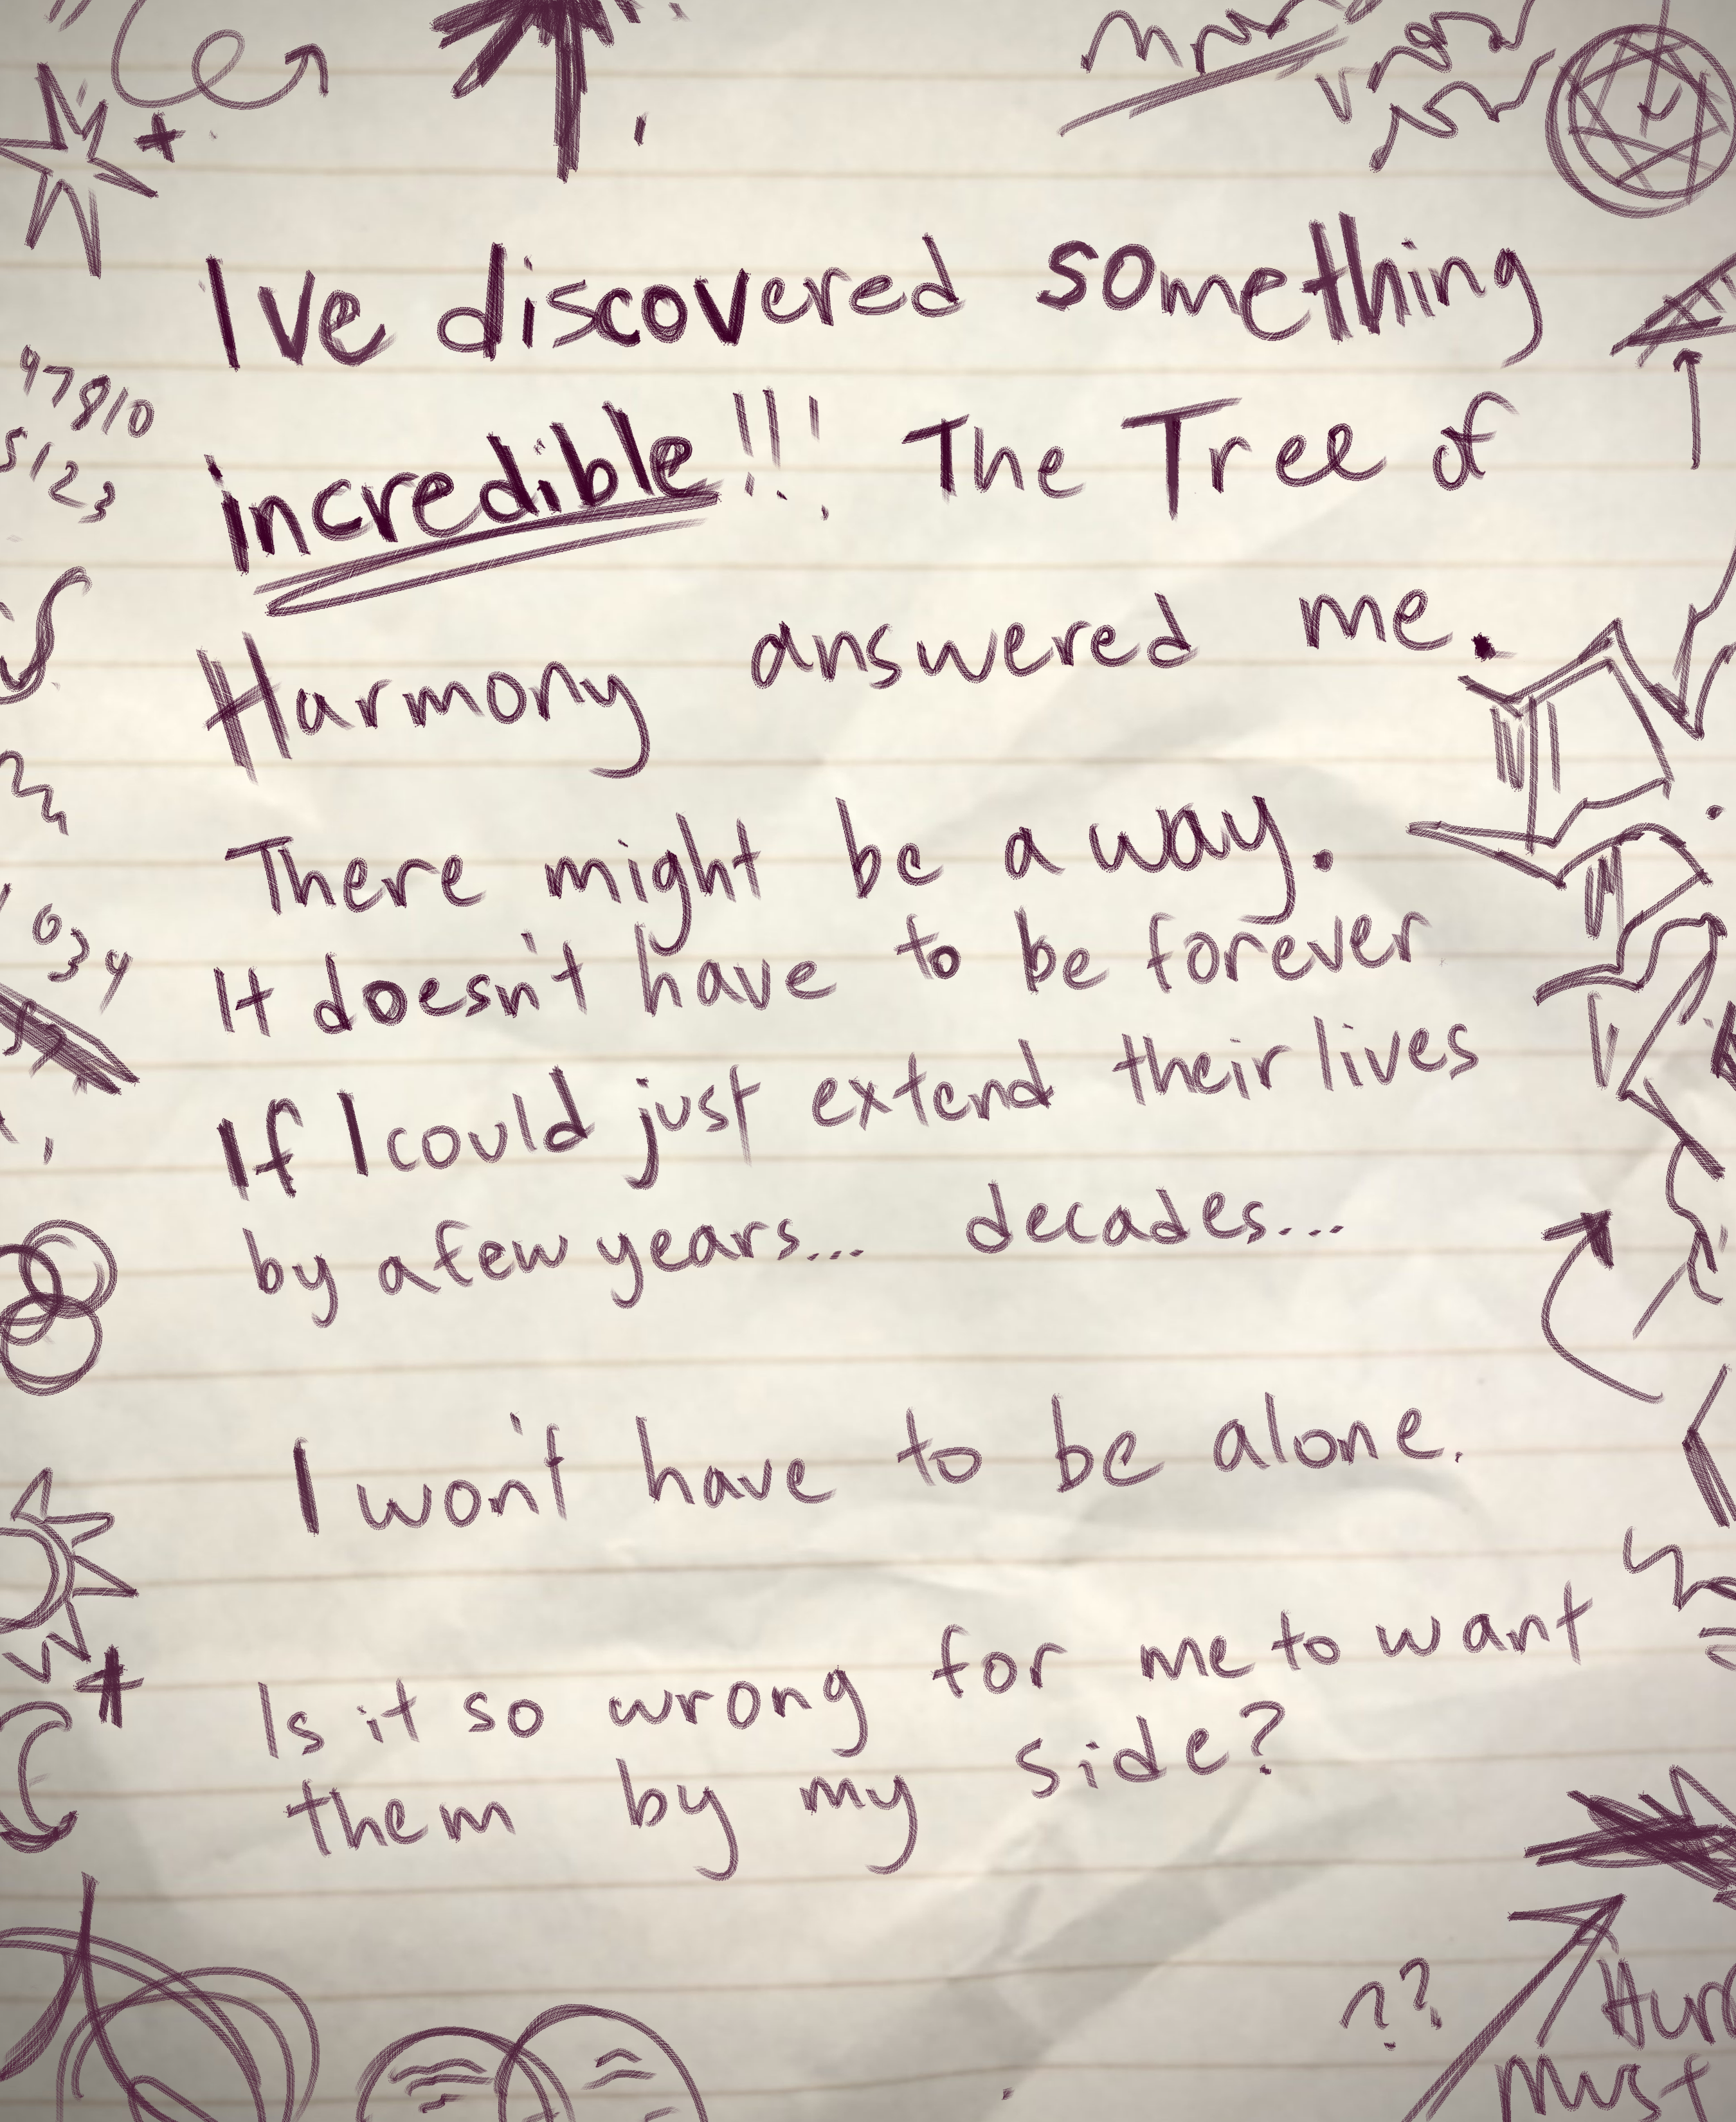 Ive discovered something
incredible!!! The Tree of
Harmony answered me.
There might be a way.
It doesn't have to be forever
If I could just extend their lives
by a few years... decades...
I won't have to be alone.
Is it so wrong for me to want
them by my side?
97810
5123
034
??
must